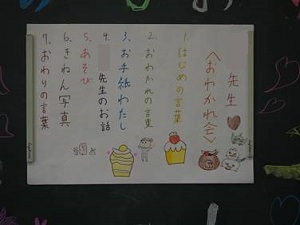 先生
〈おわかれ会〉
1. はじめの言葉
2. おわかれの言葉
3. お手紙わたし
4. 先生のお話
5. あそび
6. きねん写真
7. おわりの言葉